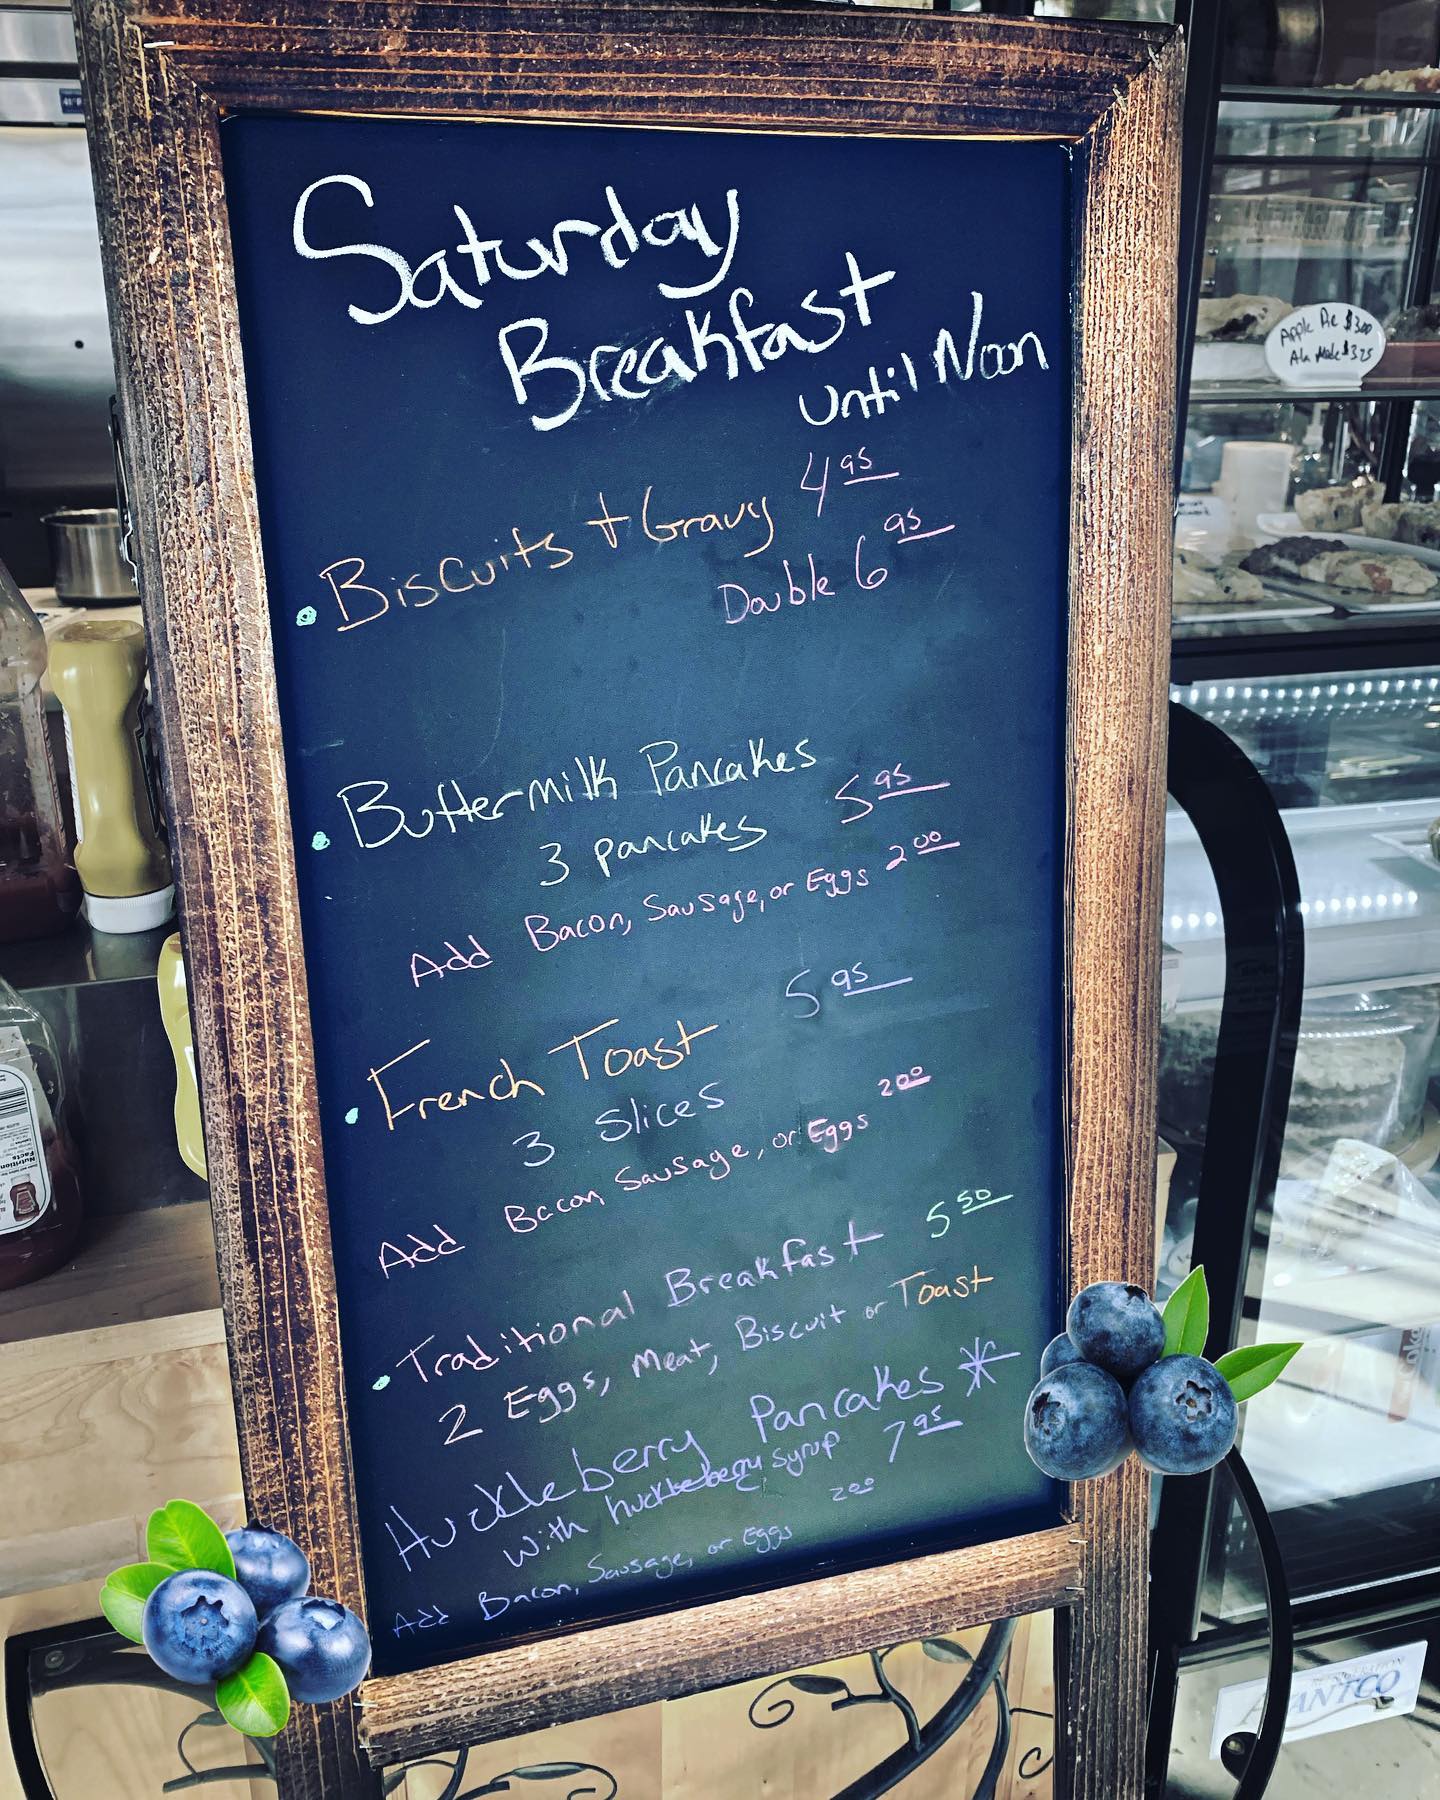 Saturday
Breakfast
until Noon
Biscuits + Gravy 4 95
Double 6 95
Buttermilk Pancakes
3 pancakes 5 95
Add Bacon, Sausage, or Eggs 2 00
French Toast 5 95
3 Slices
Add Bacon, Sausage, or Eggs 2 00
Traditional Breakfast 5 50
2 Eggs, Meat, Biscuit or Toast
Huckleberry Pancakes *
with huckleberry syrup 7 95
Add Bacon, Sausage, or Eggs 2 00
Apple Pie $3.00
Ala Mode $3.25
Nutrition
Facts
REFRIGERATION
AVANTCO